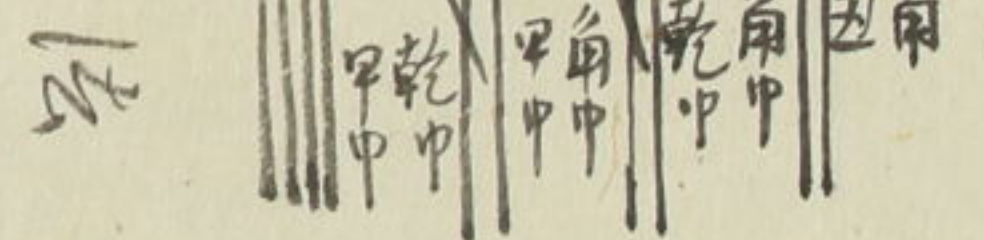 角
角巾
乾巾
角巾
甲巾
乾巾
甲巾